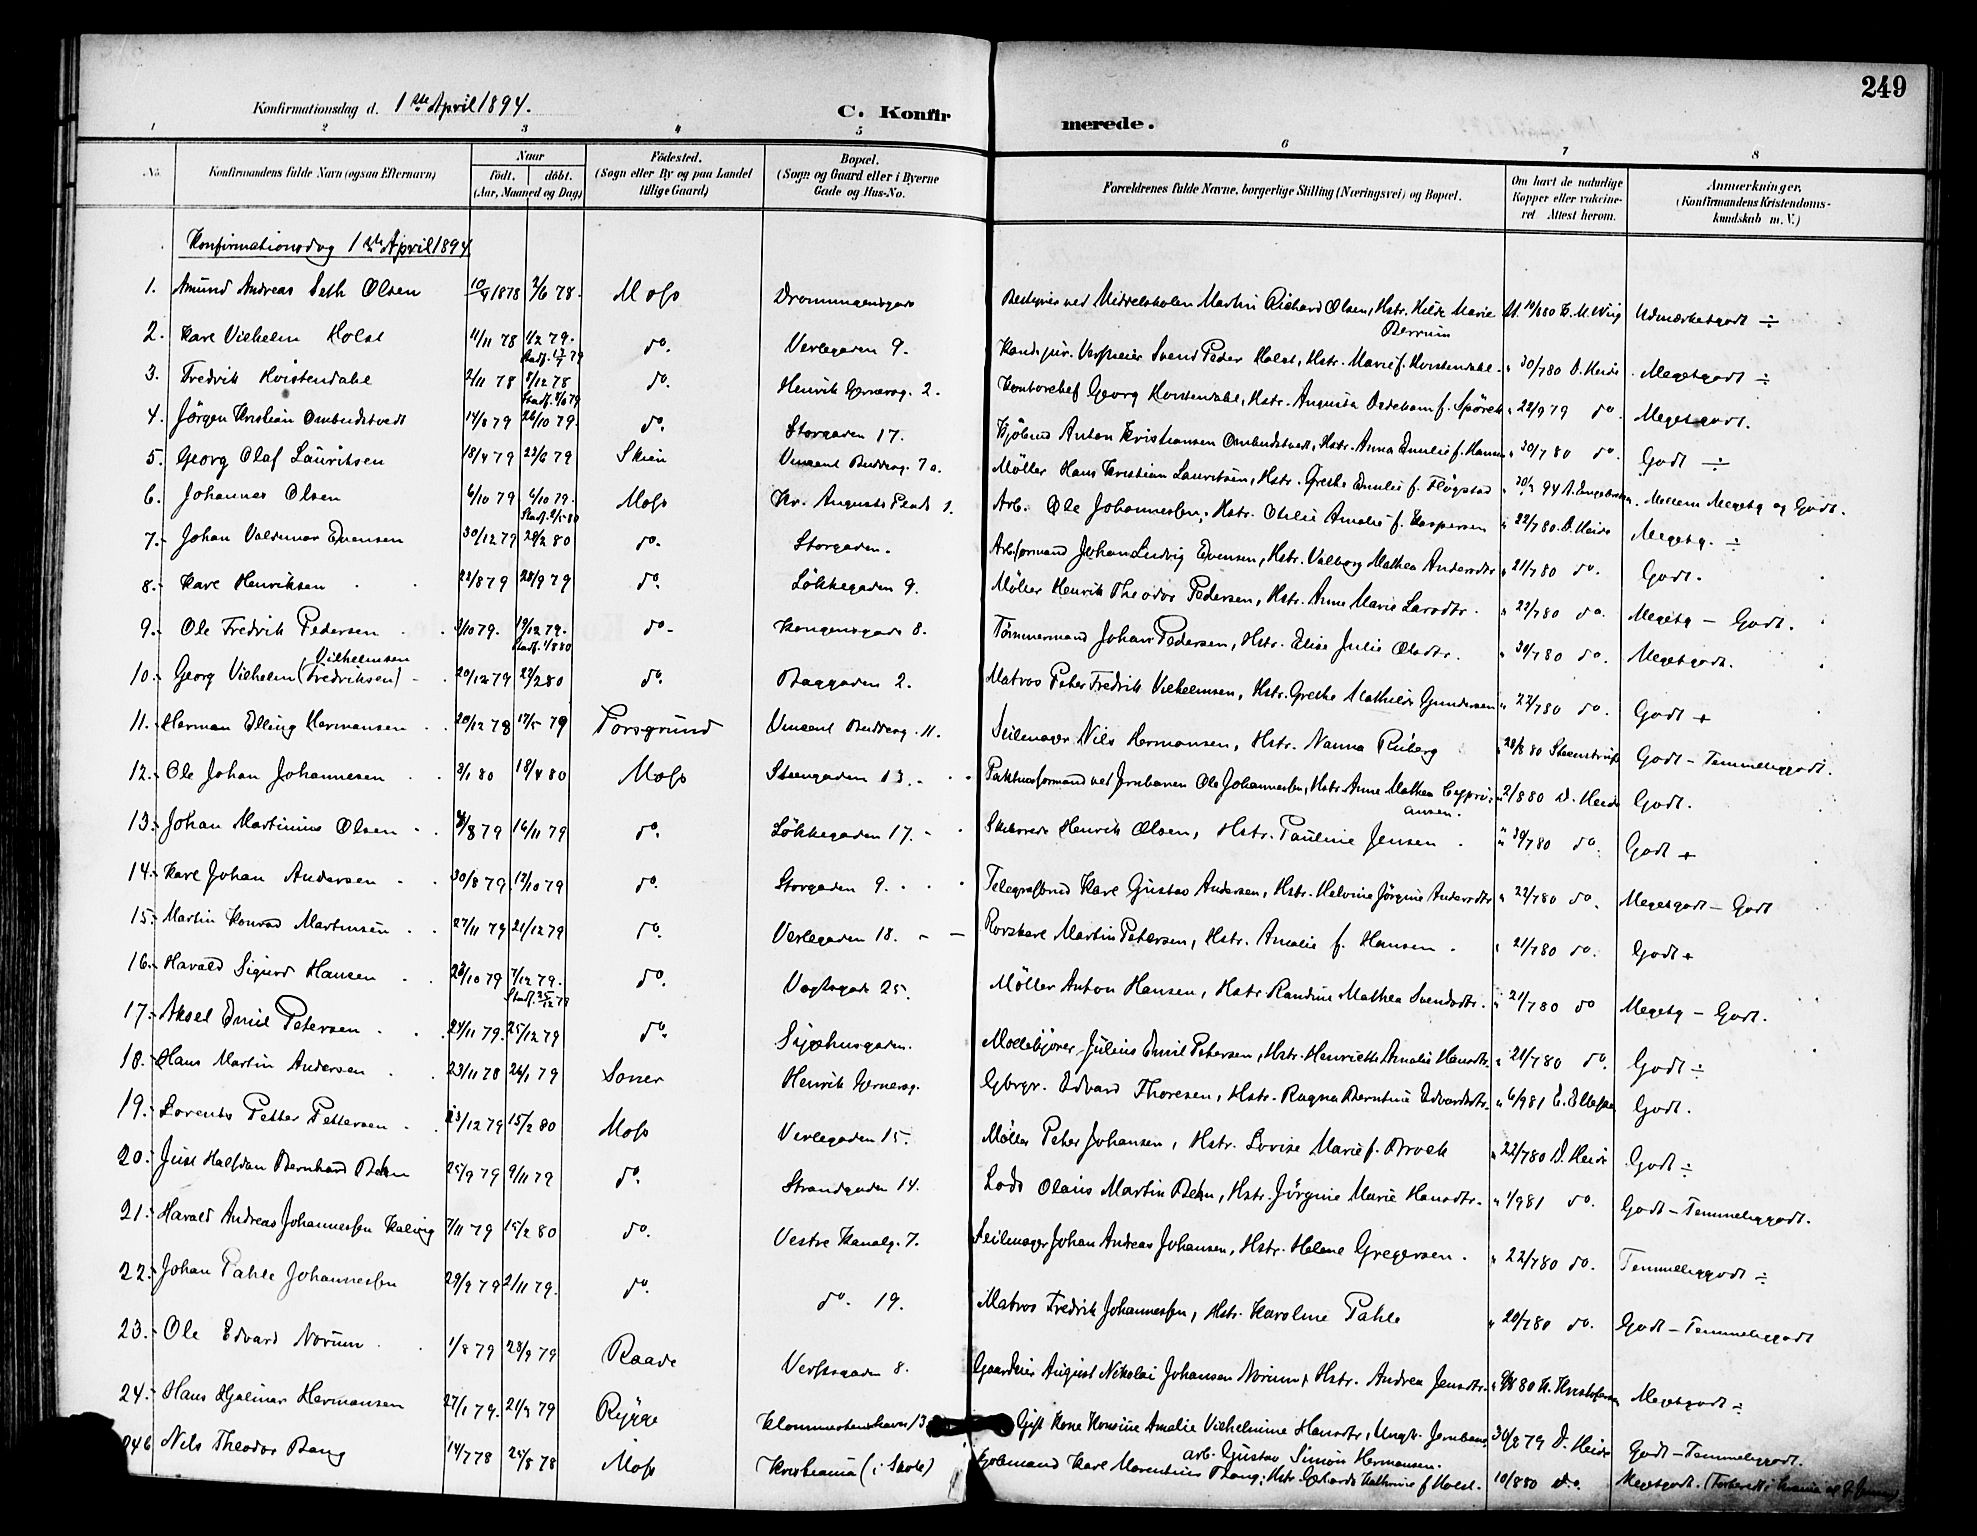 249
Konfirmationsdag d. 1ste April 1894.
C. Konfirmerede.
1 2 3 4 5 6 7 8
No.
Konfirmandens fulde Navn (ogsaa Efternavn)
Naar
født. døbt.
(Aar, Maaned og Dag)
Födested.
(Sogn eller By og paa Landet
tillige Gaard)
Bopæl.
(Sogn og Gaard eller i Byerne
Gade og Hus-No.
Forældrenes fulde Navne, borgerlige Stilling (Næringsvei) og Bopæl.
Om havt de naturlige
Kopper eller vakcine-
ret Attest herom.
Anmærkninger.
(Konfirmandens Kristendoms-
kundskab m. V.)
Konfirmationsdag 1ste April 1894
1. Amund Andreas Seth Olsen 10/4 1878 2/6 78. Moss Dronningensgade Bestyrer ved Middelskolen Martin Richard Olsen, Hstr. Hilda Marie Berrum Udmærketgodt ÷
2. Karl Vilhelm Holst 11/11 78 1/2 79. do. Verlegaden 9. Kand. jur. Verkseier Svend Peder Holst, Hstr. Marie f. Hvistendahl. 30/7 80 D. Heide Megetgodt ÷
3. Fredrik Hvistendahl 2/11 78 8/12 78 do. Henrik Gernersg. 2. Kontorchef Georg Hvistendahl, Hstr. Augusta f. Spörck 22/9 79 do. Megetgodt.
4. Jörgen Kristian Ombudstvedt 14/8 79 26/10 79. do. Storgaden 17. Kjøbmd Anton Kristiansen Ombudstvedt, Hstr. Anna Emilie f. Hansen 30/7 80 do. Godt ÷
5. Georg Olaf Lauritsen 18/4 79 22/6 79 Skien Vincent Buddesg. 7a. Møller Hans Kristian Lauritsen, Hstr. Grethe Emilie f. Flögstad Mellem Megetg og Godt.
6. Johannes Olsen 6/10 79 6/10 79. Moss Kr. Augusts Plads 1. Arb. Ole Johannessen, Hstr. Othilie Amalie f. Kaspersen 22/7 80. D. Heide Megetg. ÷
7. Johan Valdemar Evensen 30/12 79 28/2 80 do. Storgaden. Arbformand Johan Ludvig Evensen, Hstr. Valborg Mathea Andersdtr 21/7 80 do. Godt.
8. Karl Henriksen 22/8 79 28/9 79 do. Løkkegaden 9. Møller Henrik Theodor Pedersen, Hstr. Anne Marie Larsdtr. 22/7 80 do. Megetg – Godt.
9. Ole Fredrik Pedersen 3/10 79. 19/12 79. do. Kongensgade 8. Tømmermand Johan Pedersen, Hstr. Elise Julie Olsdtr. 30/7 80 do. Megetgodt.
10. Georg Vilhelm (Fredriksen) Vilhelmsen 20/12 79 29/2 80 do. Baggaden 2. Matros Peter Fredrik Vilhelmsen, Hstr. Grethe Mathilde Gundersen 22/7 80 do. Godt +
11. Herman Elling Hermansen 20/12 78 17/5 79 Porsgrund Vincent Buddesg. 11. Seilmager Nils Hermansen, Hstr. Nanna Ruberg Godt – Temmeliggodt.
12. Ole Johan Johannesen 3/1 80 18/4 80 Moss Steengaden 13. Pakhusformand ved Jernbanen Ole Johannessen, Hstr. Anne Mathea Cypriansen. 2/8 80 D. Heide Godt.
13. Johan Martinius Olsen 16/11 79 do. Løkkegaden 17. Henrik Olsen, Hstr. Pauline Jensen 30/7 80 do. Godt +
14. Karl Johan Andersen 30/8 79 12/10 79 do. Storgaden 9. Telegrafbud Karl Gustav Andersen, Hstr. Helvine Jörgine Andersdtr 22/7 80 do. Megetgodt – Godt
15. Martin Konrad Martinsen 27/11 79 21/12 79 do. Verlegaden 18. Rorskarl Martin Petersen, Hstr. Amalie f. Hansen. 21/7 80 do. Godt +
16. Harald Sigurd Hansen 28/10 79 7/12 79. do. Vogtsgade 25. Møller Anton Hansen, Hstr Randine Mathea Svendsdtr. 21/7 80 do Megetg – Godt.
17. Aksel Emil Petersen 24/11 79. 25/12 79 do. Sygehusgaden. Møllebjører Julius Emil Petersen, Hstr. Henriette Amalie Hansdtr. 21/7 80 do. Godt ÷
18. Hans Martin Andersen 23/11 78 26/1 79 Soner Henrik Gernersg. Gbrgr. Edvard Thoresen, Hstr. Ragna Berntine Edvardsdtr. 6/9 81 Godt.
19. Lorents Petter Pettersen 23/12 79 15/2 80 Moss Verlegaden 15. Møller Peter Johansen, Hstr. Lovise Marie f. Brock 22/7 80 D. Heide Godt ÷
20. Just Halfdan Bernhard Behn 25/9 79 9/11 79 do. Strandgaden 14. Lods Olaus Martin Behn, Hstr. Jörgine Marie Hansdtr. 1/9 81 do. Godt – Temmeliggodt.
21. Harald Andreas Johannessen Kalvig 7/11 79 15/2 80 do. Vestre Kanalg. 7. Seilmager Johan Andreas Johansen, Hstr. Helene Gregersen. 22/7 80 do. Temmeliggodt ÷
22. Johan Pahle Johannessen 29/9 79 2/11 79. do. do. 19. Matros Fredrik Johannessen, Hstr. Karoline Pahle 20/7 80 do. Godt – Temmeliggodt
23. Ole Edvard Norum 1/8 79 28/9 79 Raade Verksgaden 8. Gaardeier August Nikolai Johansen Norum, Hstr. Andrea Jensdtr. Megetgodt ÷
24. Hans Hjalmar Hermansen 27/1 79. 21/9 79 Rygge Gift Kone Konsine Amalie Vilhelmine Hansdtr, Ungk. Jernbane arb. Gustav Simon Hermansen. 30/8 79 D. Heide Godt – Temmeliggodt.
Nils Theodor Bang 14/7 78 25/8 78 Moss Kristiania (i Skole) Kjøbmand Karl Marentius Bang, Hstr. Kathrine f Holst. 10/8 80 do. Megetgodt.